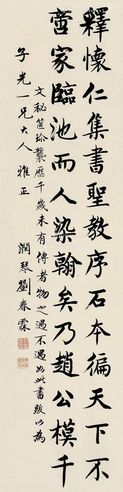 釋懷仁集書聖教序石本徧天下不
啻家臨池而人染翰矣乃趙公模千
文秘篋珍襲歷千歲未有傳者物之遇不遇如此書
子光一兄大人雅正
潤琴劉春霖